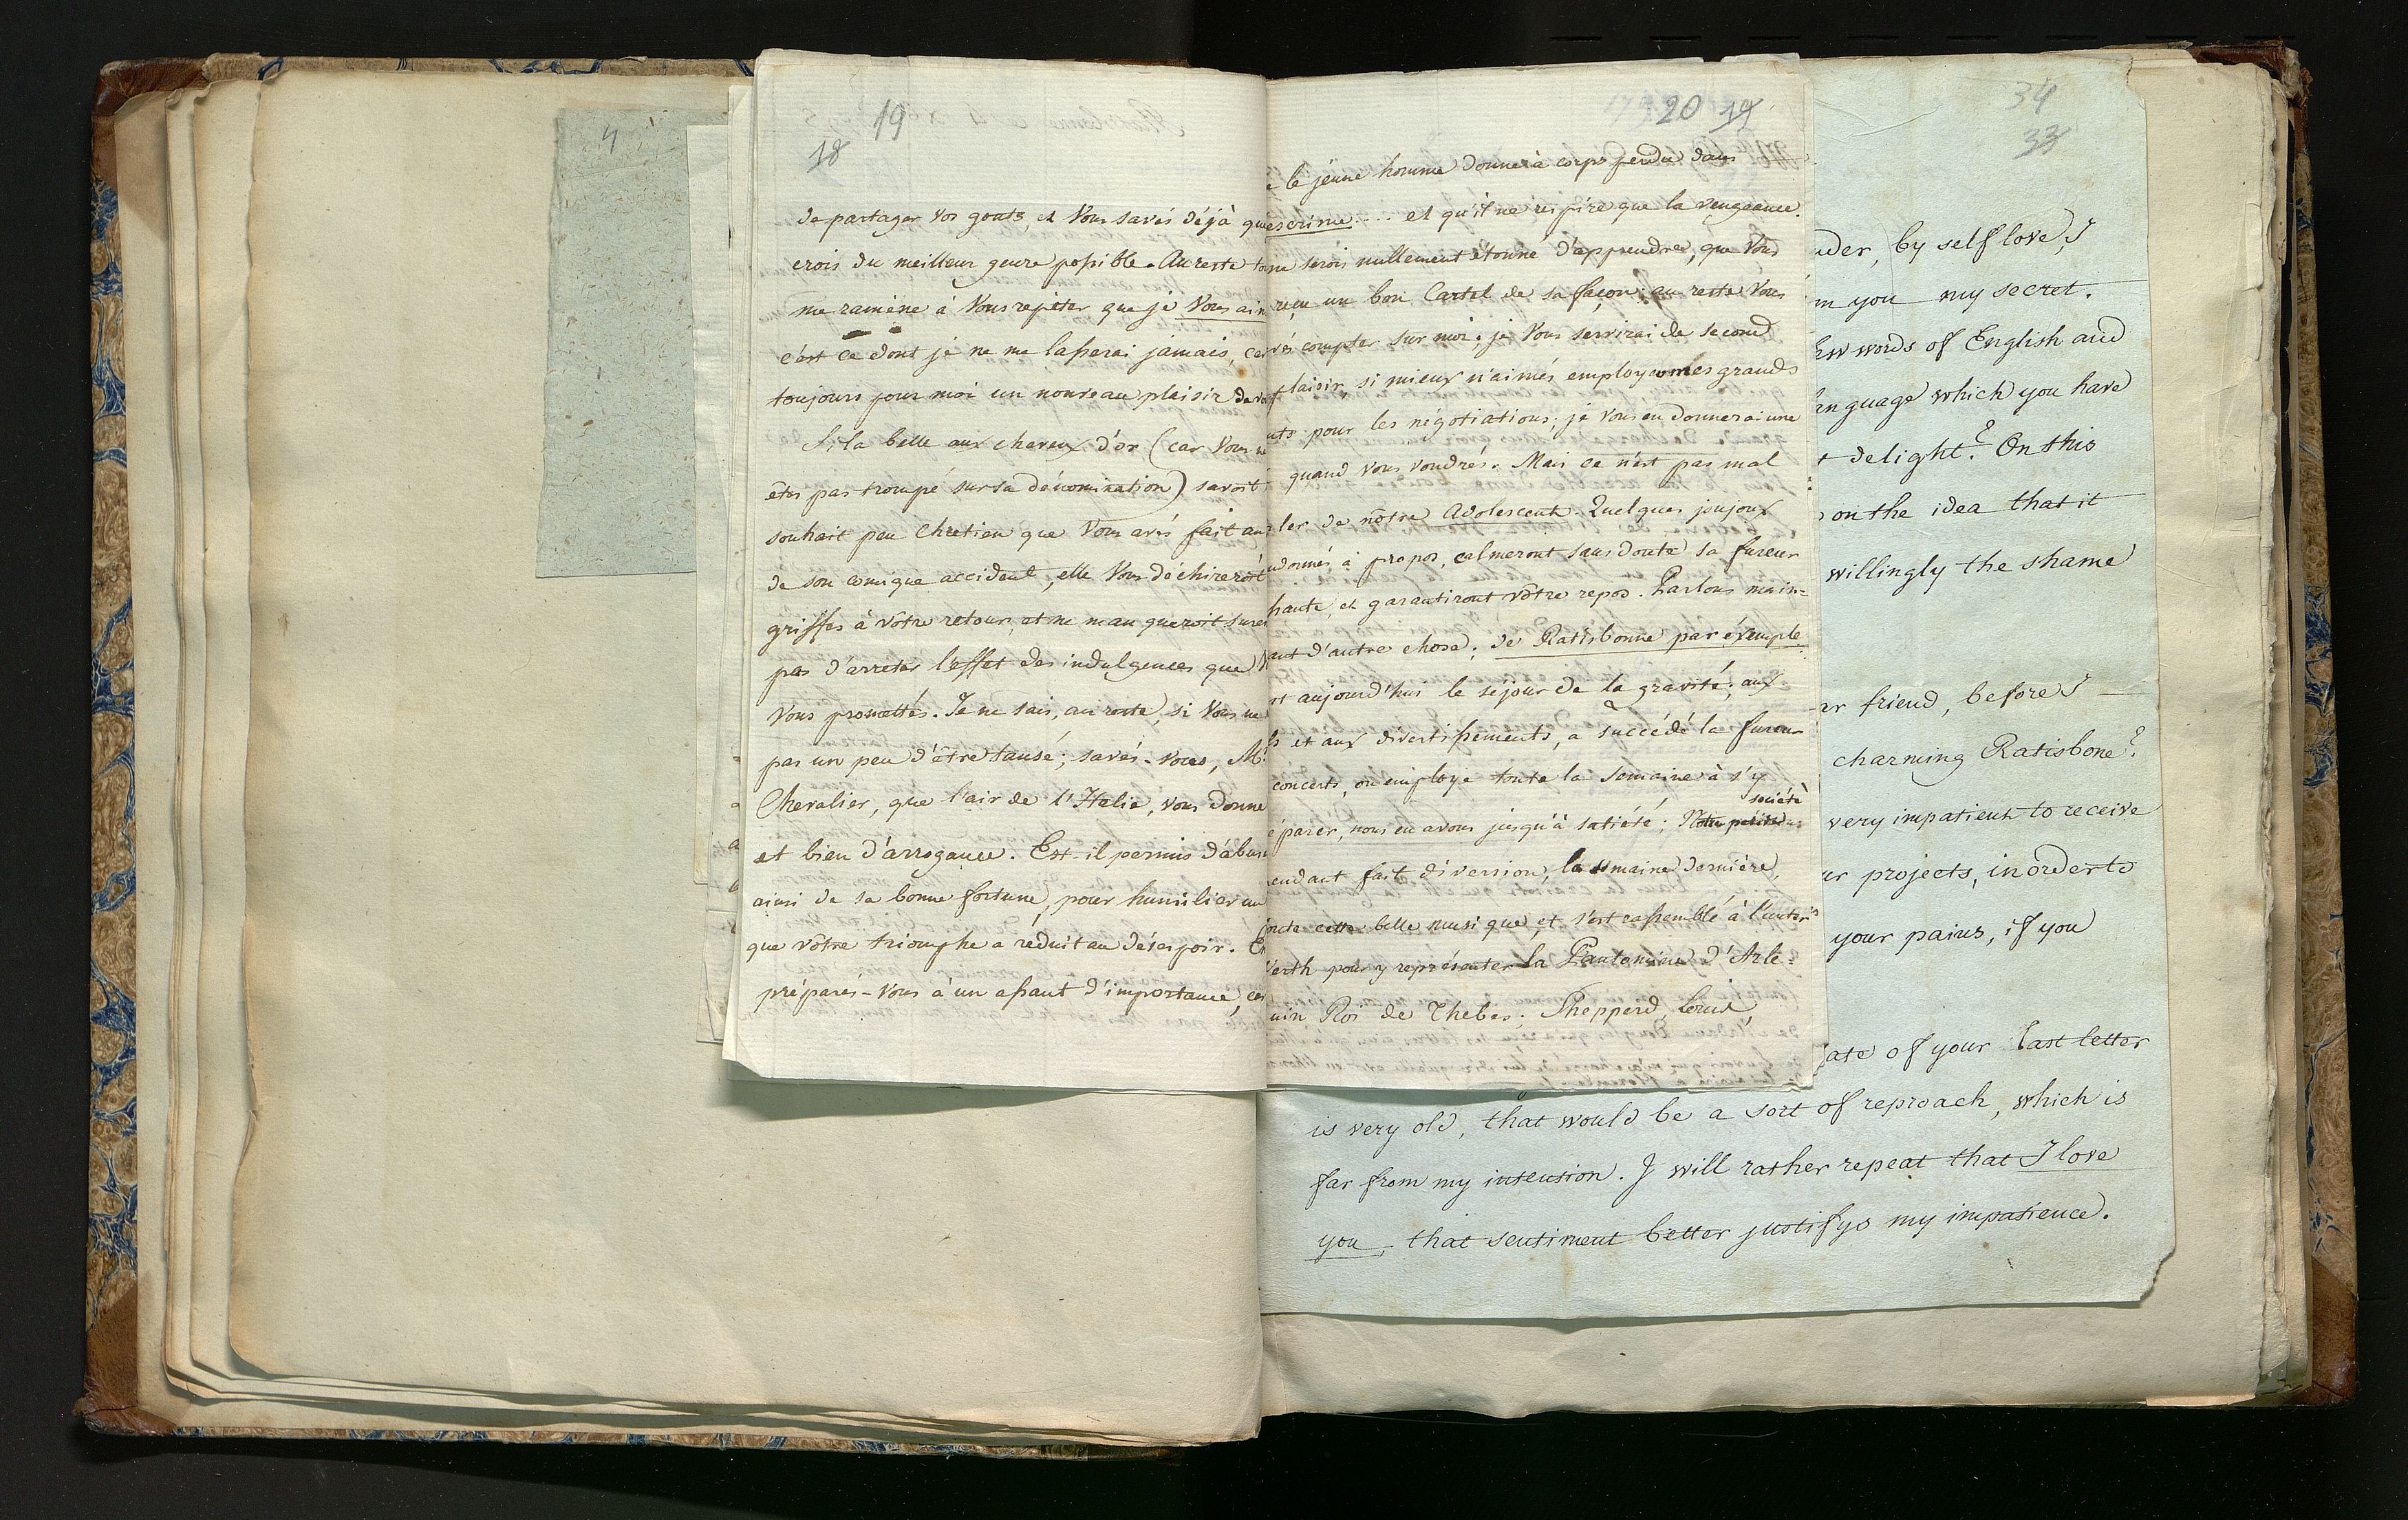 4
19
18
de partager vos gouts, et Vous savés déjà que
crois du meilleur genre possible. Au reste to
me ramène à Vous repéter que je Vous aim
c'est ce dont je ne me lasserai jamais, car
toujours pour moi un nouveau plaisir de v
Si la belle aux cheveux d'or (car Vous ne
êtes pas trompé sur sa dénomination) savoit
souhait peu Chretien que Vous avés fait au
de son comique accident, elle Vous déchireroit
griffes à Vôtre retour, et ne manqueroit surem
pas d'arreter l'effet des indulgences que
Vous promettés. Je ne sais, au reste, si Vous ne
pas un peu d'être tansé; savés-vous, Mr
Chevalier, que l'air de l'Italie, vous donne
et bien d'arrogance. Est-il permis d'abus
ainsi de sa bonne fortune, pour humilier un
que Vôtre triomphe a réduit au désespoir. En
préparés-Vous à un assaut d'importance, car
20 19
e le jeune homme donne à corps perdu dans
escrime .... et qu'il ne respire que la vengeance.
ne serois nullement étonné d'apprendre, que Vous
reçu un bon Cartel de sa façon; au reste Vous
vés compter sur moi; je Vous servirai de second
plaisir, si mieux n'aimés employer mes grands
nts pour les négotiations; je Vous en donnerai une
quand vous voudrés. Mais ce n'est pas mal
ler de nôtre Adolescent. Quelques joujoux
donnés à propos, calmeront sans doute sa fureur
ssante, et garantiront Vôtre repos. Parlons main=
ant d'autre chose; de Ratisbonne par éxemple
st aujourd'hui le séjour de la gravité; aux
ls et aux divertissements, a succédé la fureur
concerts, on employe toute la semaine à s'y
société
éparer, nous en avons jusqu'à satiété; Notre petite
endant fait diversion, la semaine dernière,
oute cette belle musique, et s'est rassemblé à l'
Verth pour y représenter la Pantomime d'Arle=
uin Roi de Thebes; Shepperd, Louis,
34
33
nder, by self love, I
m you my secret.
ew words of English and
anguage which you have
t delight? On this
on the idea that it
willingly the shame
ar friend, before I
charming Ratisbone?
very impatient to receive
ur projects, in order to
your pains, if you
ate of your last letter
is very old, that would be a sort of reproach, which is
far from my intention. I will rather repeat that I love
you, that sentiment better justifys my impatience.